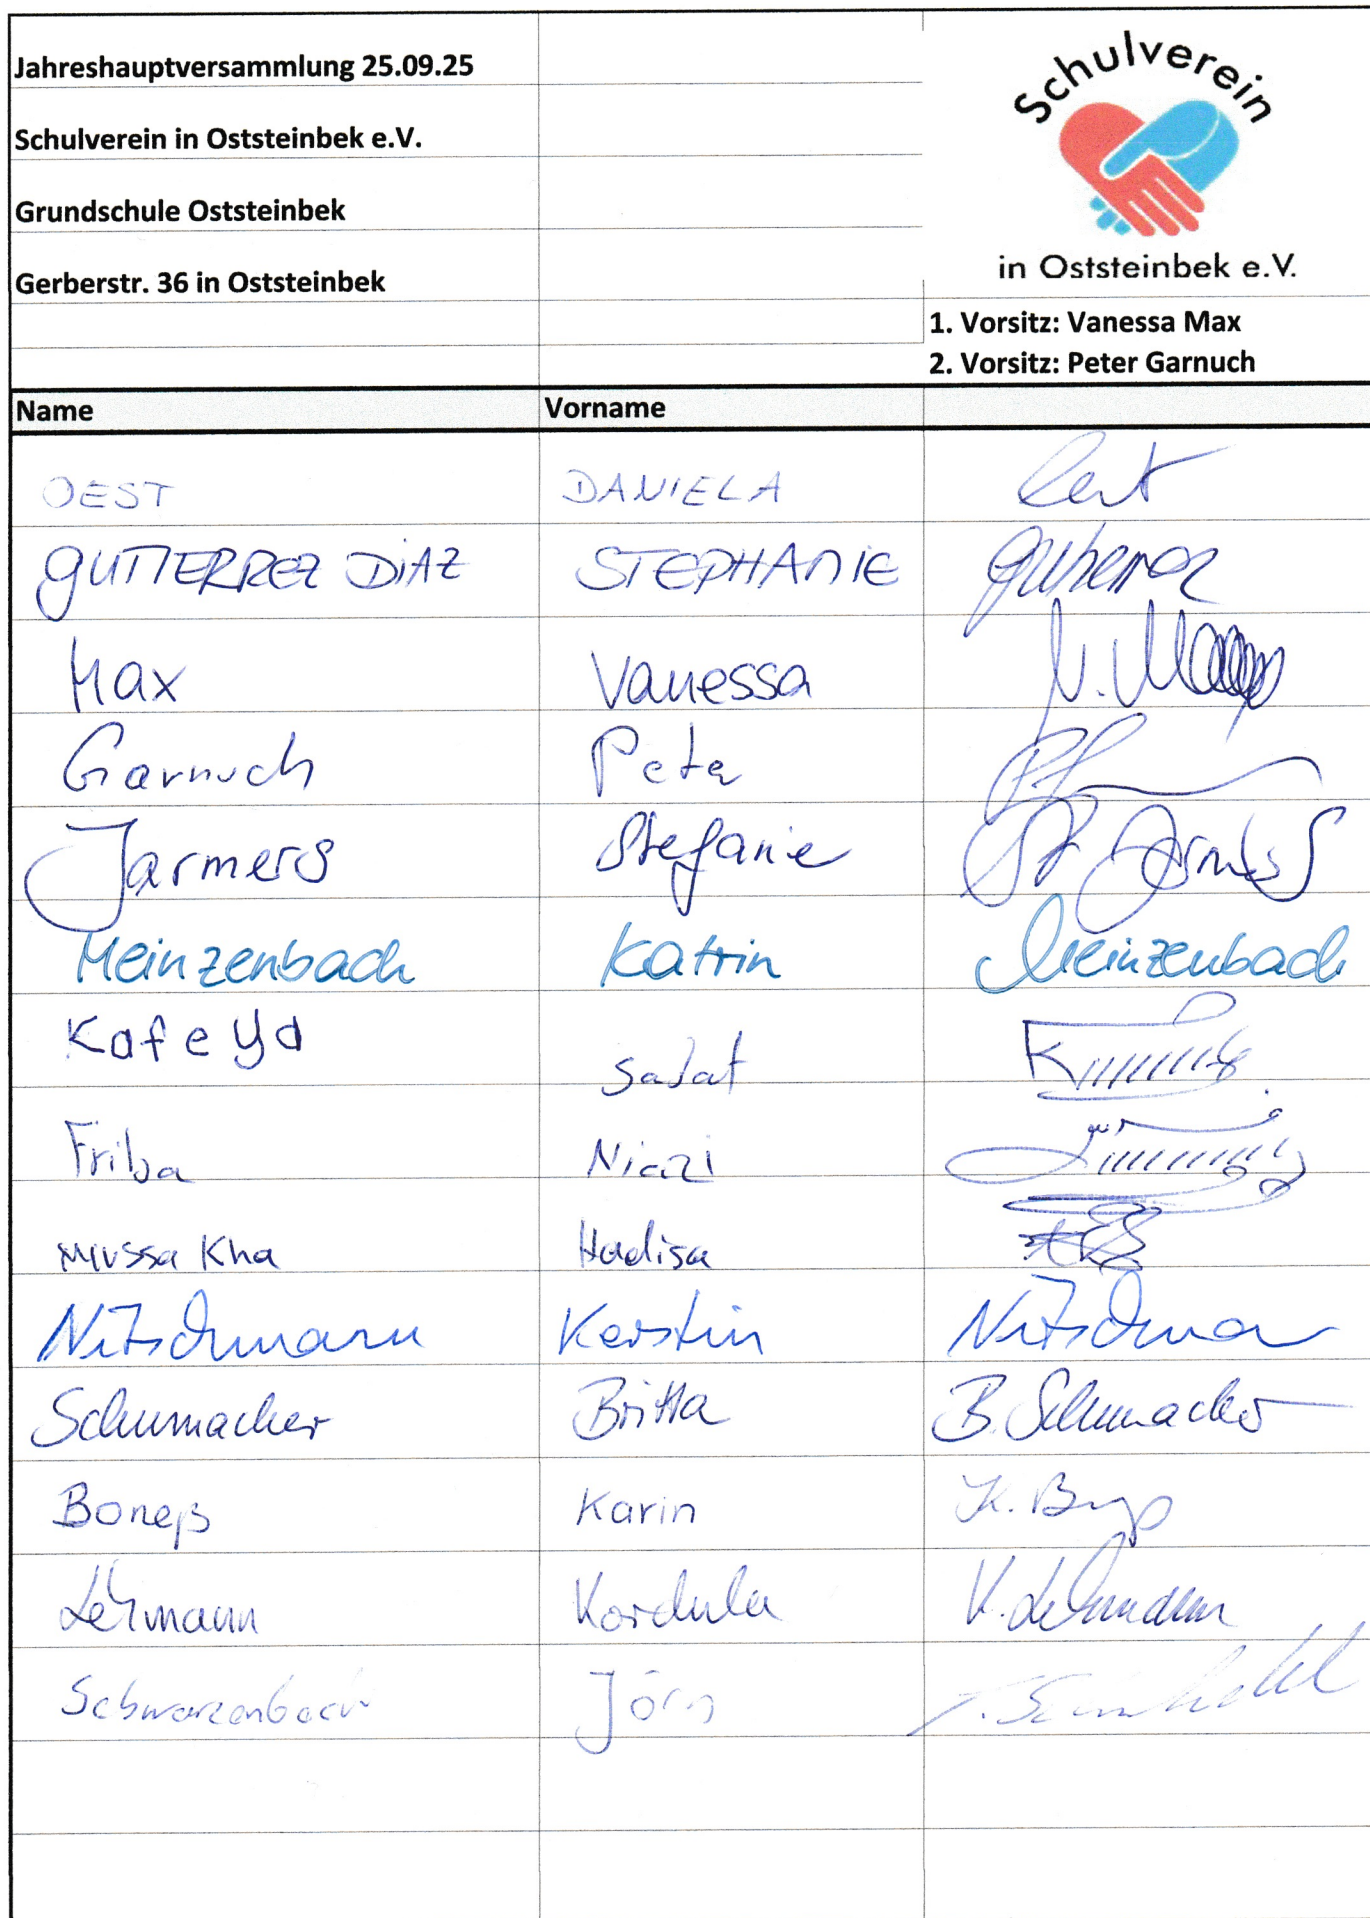 Jahreshauptversammlung 25.09.25
Schulverein in Oststeinbek e.V.
Grundschule Oststeinbek
Gerberstr. 36 in Oststeinbek
Schulverein
in Oststeinbek e.V.
1. Vorsitz: Vanessa Max
2. Vorsitz: Peter Garnuch
Name Vorname
OEST DANIELA
GUTIERREZ DiAZ STEPHANIE
Max Vanessa V. Max
Garnuch Peter
Jarmers Stefanie
Meinzenbach Katrin Meinzenbach
Kafeyd Sadat
Friba Niazi
Mussa Kha Hadisa
Nitschmann Kerstin
Schumacher Britta B. Schumacher
Boneß Karin
Lehmann Kordula K. Lehmann
Schwarzenbach Jörn